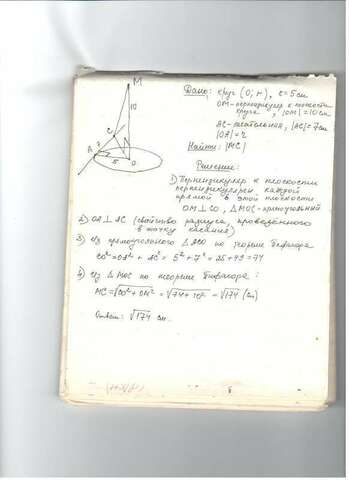 Дано: круг (O; r), r = 5 см
OM - перпендикуляр к плоскости
круга, |OM| = 10 см
AC - касательная, |AC| = 7 см
|OA| = r
Найти: |MC|
Решение:
1) Перпендикуляр к плоскости
перпендикулярен каждой
прямой в этой плоскости
OM ⊥ CO, △MOC - прямоугольный
2) OA ⊥ AC (свойство радиуса, проведённого
в точку касания)
3) Из прямоугольного △ACO по теореме Пифагора
CO² = OA² + AC² = 5² + 7² = 25 + 49 = 74
4) Из △MOC по теореме Пифагора:
MC = √CO² + OM² = √74 + 10² = √174 (см)
Ответ: √174 см.
M
10
C
A
7
5
O